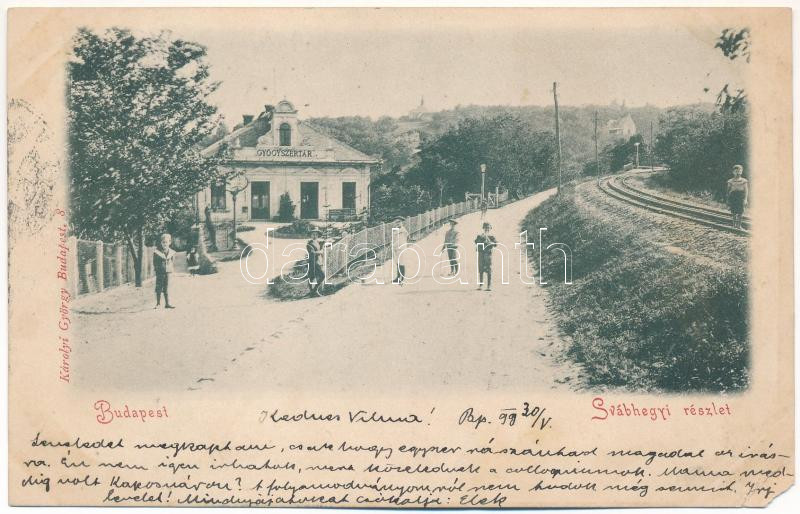 GYÓGYSZERTÁR
darabanth.com
Károlyi György Budapest, 8
Budapest
Svábhegyi részlet
Kedves Vilma! Bp. 99 30/V.
Leveledet megkaptam, csak hogy egyszer rászántad magadat az irás-
ra. Én nem igen irhatok, mert közelednek a colloquiumok. Manna med-
dig volt Kaposváron? A folyamodványomról nem tudok még semmit. Irj
levelet! Mindnyájatokat csókolja: Elek